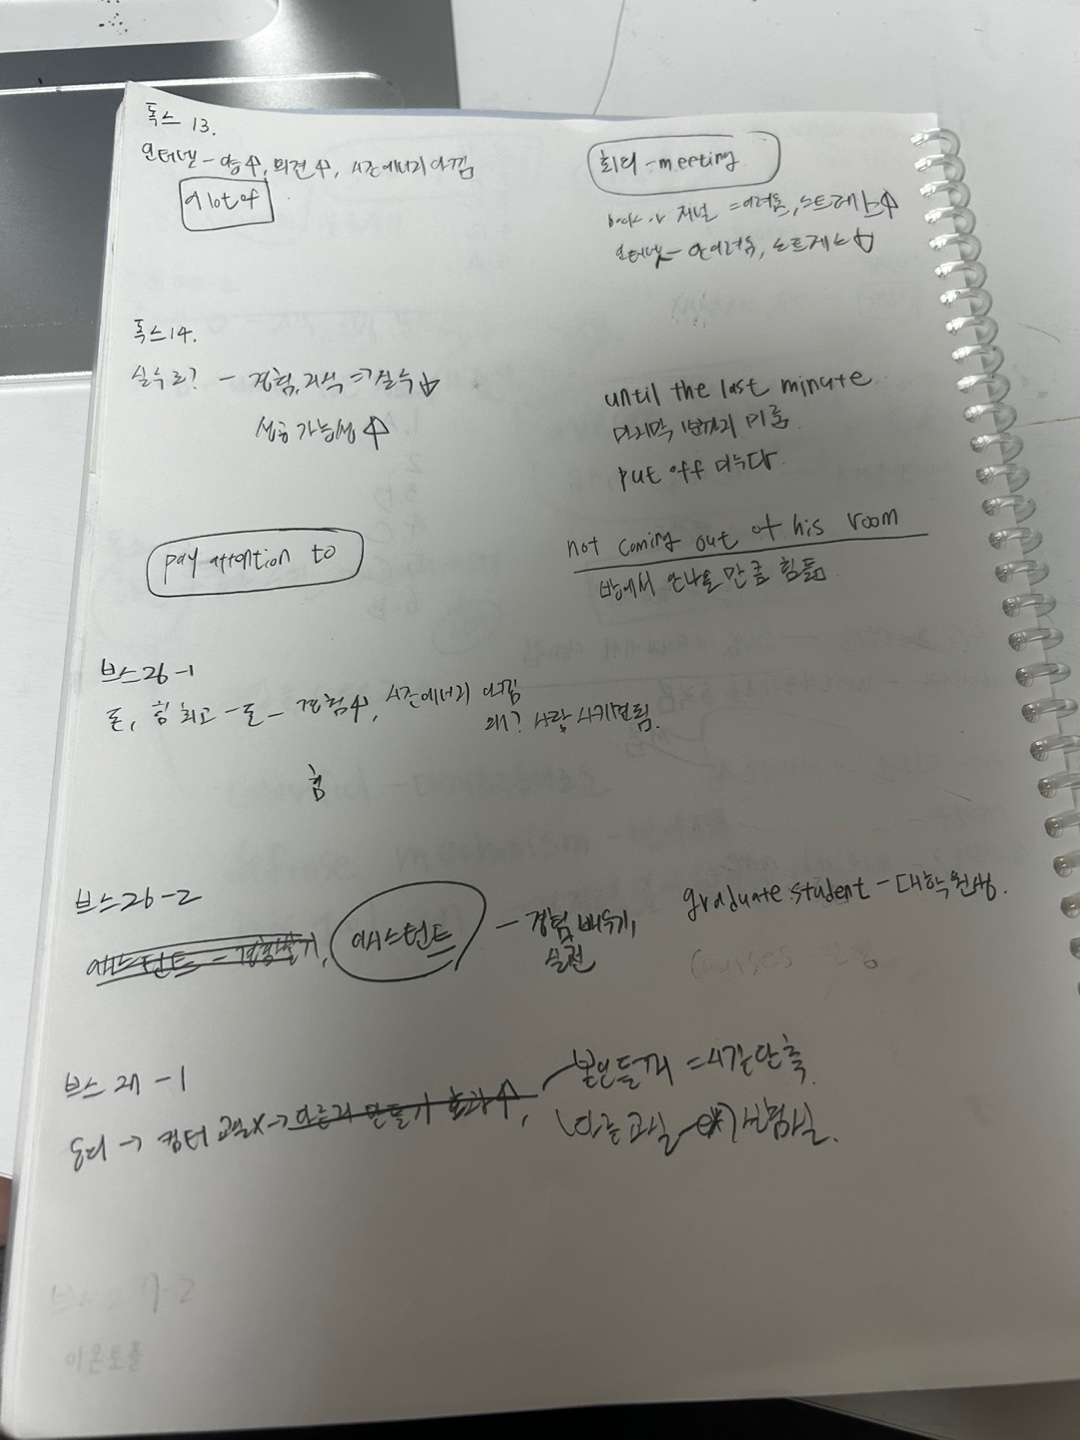 톡스 13.
인터넷 - 이동↑, 의견↑, 시간에너지 아낌
a lot of
회의 - meeting
저널 = 어려움, 스트레스↑
인터넷 - 안어려움, 스트레스↓
톡스14.
실수로? - 경험, 지식 => 실수↓
성공 가능성 ↑
until the last minute
마지막 1분까지 미룸.
put off 미누다.
pay attention to
not coming out of his room
방에서 안나올 만큼 힘듦
브스26-1
돈, 힘 최고 - 돈 - 경험↑, 시간에너지 아낌
왜? 사람 시키면됨.
힘
브스26-2
어시스턴트 - 경험 배우기,
실전
graduate student - 대학원생.
courses
브스 27 -1
동의 -> 컴터 교실x ->
본인들꺼 = 시간단축.
다른교실 실험실.
브스27-2
이온토플